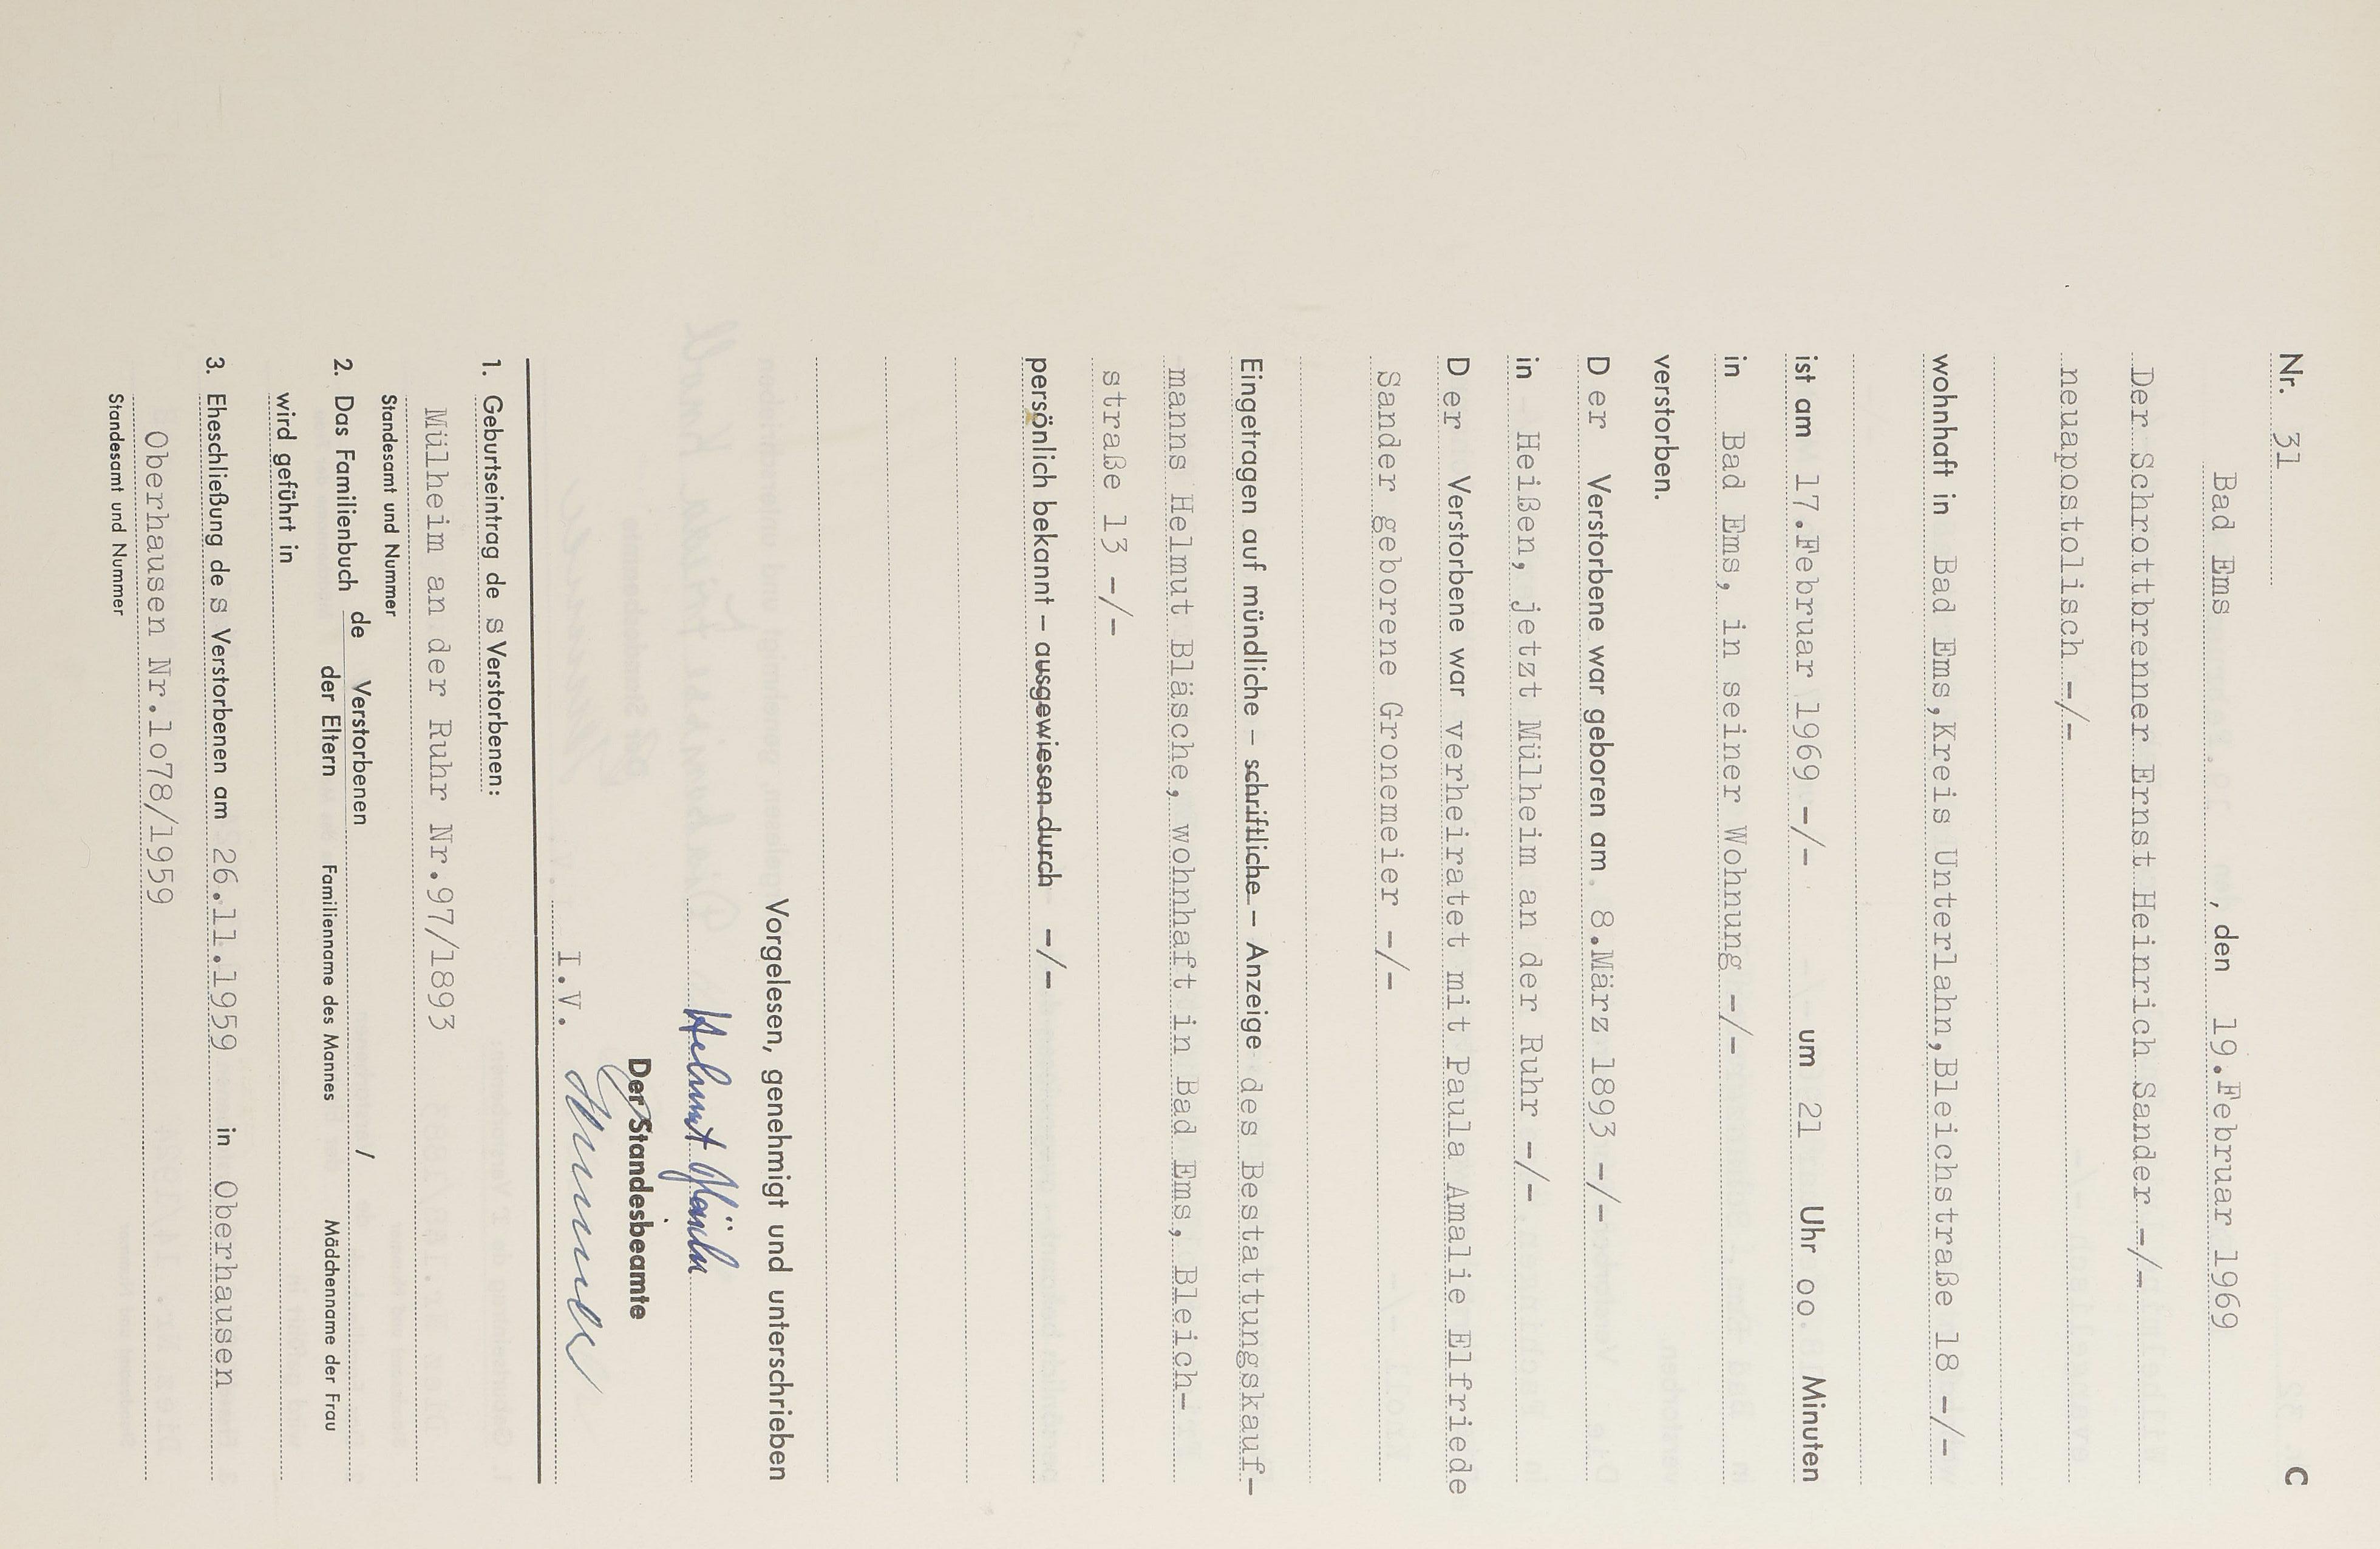 Nr. 31 C
Bad Ems, den 19.Februar 1969
Der Schrottbrenner Ernst Heinrich Sander -/-
neuapostolisch -/-
wohnhaft in Bad Ems,Kreis Unterlahn,Bleichstraße 18 -/-
ist am 17.Februar 1969 -/- um 21 Uhr oo Minuten
in Bad Ems, in seiner Wohnung -/-
verstorben.
D er Verstorbene war geboren am 8.März 1893 -/-
in Heißen, jetzt Mülheim an der Ruhr -/-
D er Verstorbene war verheiratet mit Paula Amalie Elfriede
Sander geborene Gronemeier -/-
Eingetragen auf mündliche – schriftliche – Anzeige des Bestattungskauf-
manns Helmut Bläsche, wohnhaft in Bad Ems, Bleich-
straße 13 -/-
persönlich bekannt – ausgewiesen durch -/-
Vorgelesen, genehmigt und unterschrieben
Helmut Bläsche
Der Standesbeamte
I.V.
1. Geburtseintrag de s Verstorbenen:
Mülheim an der Ruhr Nr.97/1893
Standesamt und Nummer
2. Das Familienbuch de Verstorbenen /
der Eltern Familienname des Mannes Mädchenname der Frau
wird geführt in
3. Eheschließung de s Verstorbenen am 26.11.1959 in Oberhausen
Oberhausen Nr.1o78/1959
Standesamt und Nummer